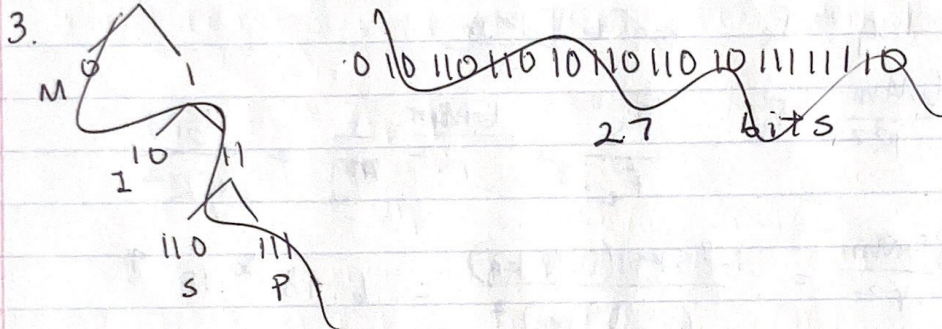 3.
0 1
M
10 11
I
110 111
S P
0 10 110 110 10 110 110 10 111 111 10
27 bits